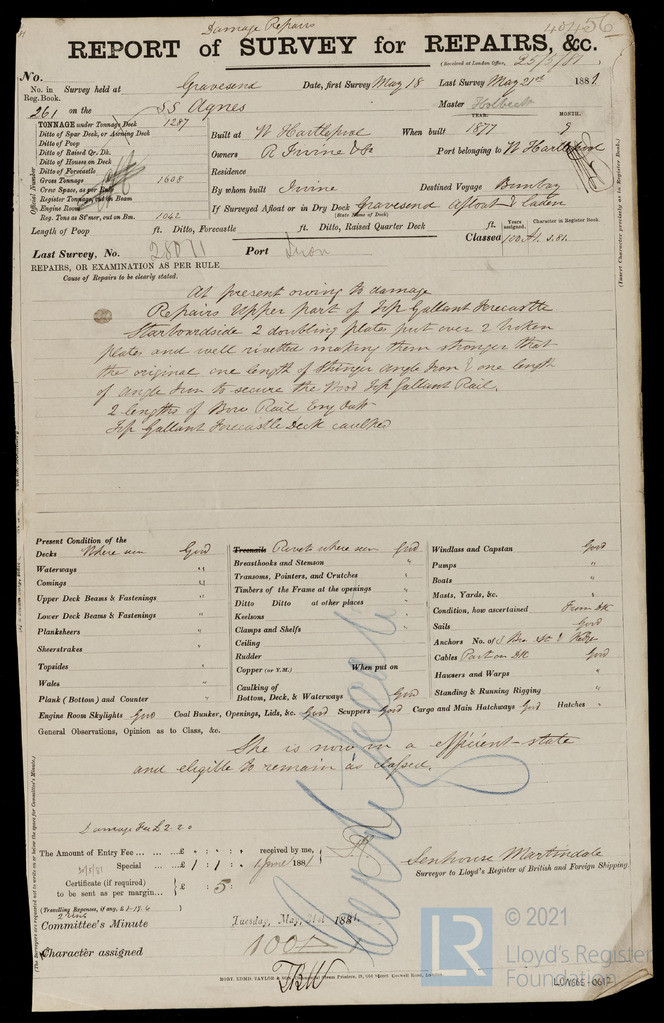 Damage Repairs
40456
REPORT of SURVEY for REPAIRS, &c.
(Received at London Office, 25/5/81
No.
No. in Reg. Book. Survey held at Gravesend Date, first Survey May 18 Last Survey May 21st 1881.
261 on the SS Agnes Master Holbeck
TONNAGE under Tonnage Deck 1287
Ditto of Spar Deck, or Awning Deck
Ditto of Poop
Ditto of Raised Qr. Dk.
Ditto of Houses on Deck
Ditto of Forecastle
Gross Tonnage 1608
Crew Space, as per Rule
Register Tonnage, cut on Beam
Engine Room
Reg. Tons as St'mer, cut on Bm. 1042
Official Number
YEAR. MONTH.
Built at W Hartlepool When built 1877 9
Owners R Irvine & Co Port belonging to W Hartlepool
Residence
By whom built Irvine Destined Voyage Bombay
If Surveyed Afloat or in Dry Dock Gravesend Afloat & laden
(State Name of Dock)
Length of Poop ft. Ditto, Forecastle ft. Ditto, Raised Quarter Deck ft.
Years assigned. Character in Register Book.
Classed 100 A1. 3.81.
(Insert Character precisely as in Register Book.)
Last Survey, No. 28071 Port Iron
REPAIRS, OR EXAMINATION AS PER RULE
Cause of Repairs to be clearly stated.
At present owing to damage
Repairs Upper part of Top Gallant Forecastle
Starboardside 2 doubling plates put over 2 broken
plates and well rivetted making them stronger that
the original one length of Stringer angle Iron & one length
of angle Iron to secure the Wood Top Gallant Rail.
2 lengths of Bow Rail Eng Oak
Top Gallant Forecastle Deck caulked
Present Condition of the
Decks Where seen Good
Waterways "
Comings "
Upper Deck Beams & Fastenings "
Lower Deck Beams & Fastenings "
Planksheers "
Sheerstrakes "
Topsides "
Wales "
Plank (Bottom) and Counter "
Treenails Rivets where seen Good
Breasthooks and Stemson "
Transoms, Pointers, and Crutches "
Timbers of the Frame at the openings "
Ditto Ditto at other places "
Keelsons "
Clamps and Shelfs "
Ceiling "
Rudder "
Copper (or Y.M.) When put on
Caulking of Bottom, Deck, & Waterways Good
Windlass and Capstan Good
Pumps "
Boats "
Masts, Yards, &c. "
Condition, how ascertained From Dk
Sails Good
Anchors No. of 3 Bro 1 St 1 Kedge
Cables Part on Dk Good
Hawsers and Warps "
Standing & Running Rigging "
Engine Room Skylights Good Coal Bunker, Openings, Lids, &c. Good Scuppers Good Cargo and Main Hatchways Good Hatches "
General Observations, Opinion as to Class, &c.
She is now in a efficient state
and eligible to remain as classed.
Damage Fee £2.2.0
The Amount of Entry Fee ... £ : : received by me,
Special ... £ 1 : 1 : 1 June 1881
Certificate (if required) to be sent as per margin... £ : 5 :
(Travelling Expenses, if any, £ 1-13.6
Senhouse Martindale
Surveyor to Lloyd's Register of British and Foreign Shipping.
Committee's Minute Tuesday, May, 31st 1881.
Character assigned 100A1
(The Surveyors are requested not to write on or below the space for Committee's Minute.)
© 2021
LR
Lloyd's Register
Foundation
LON562-0617